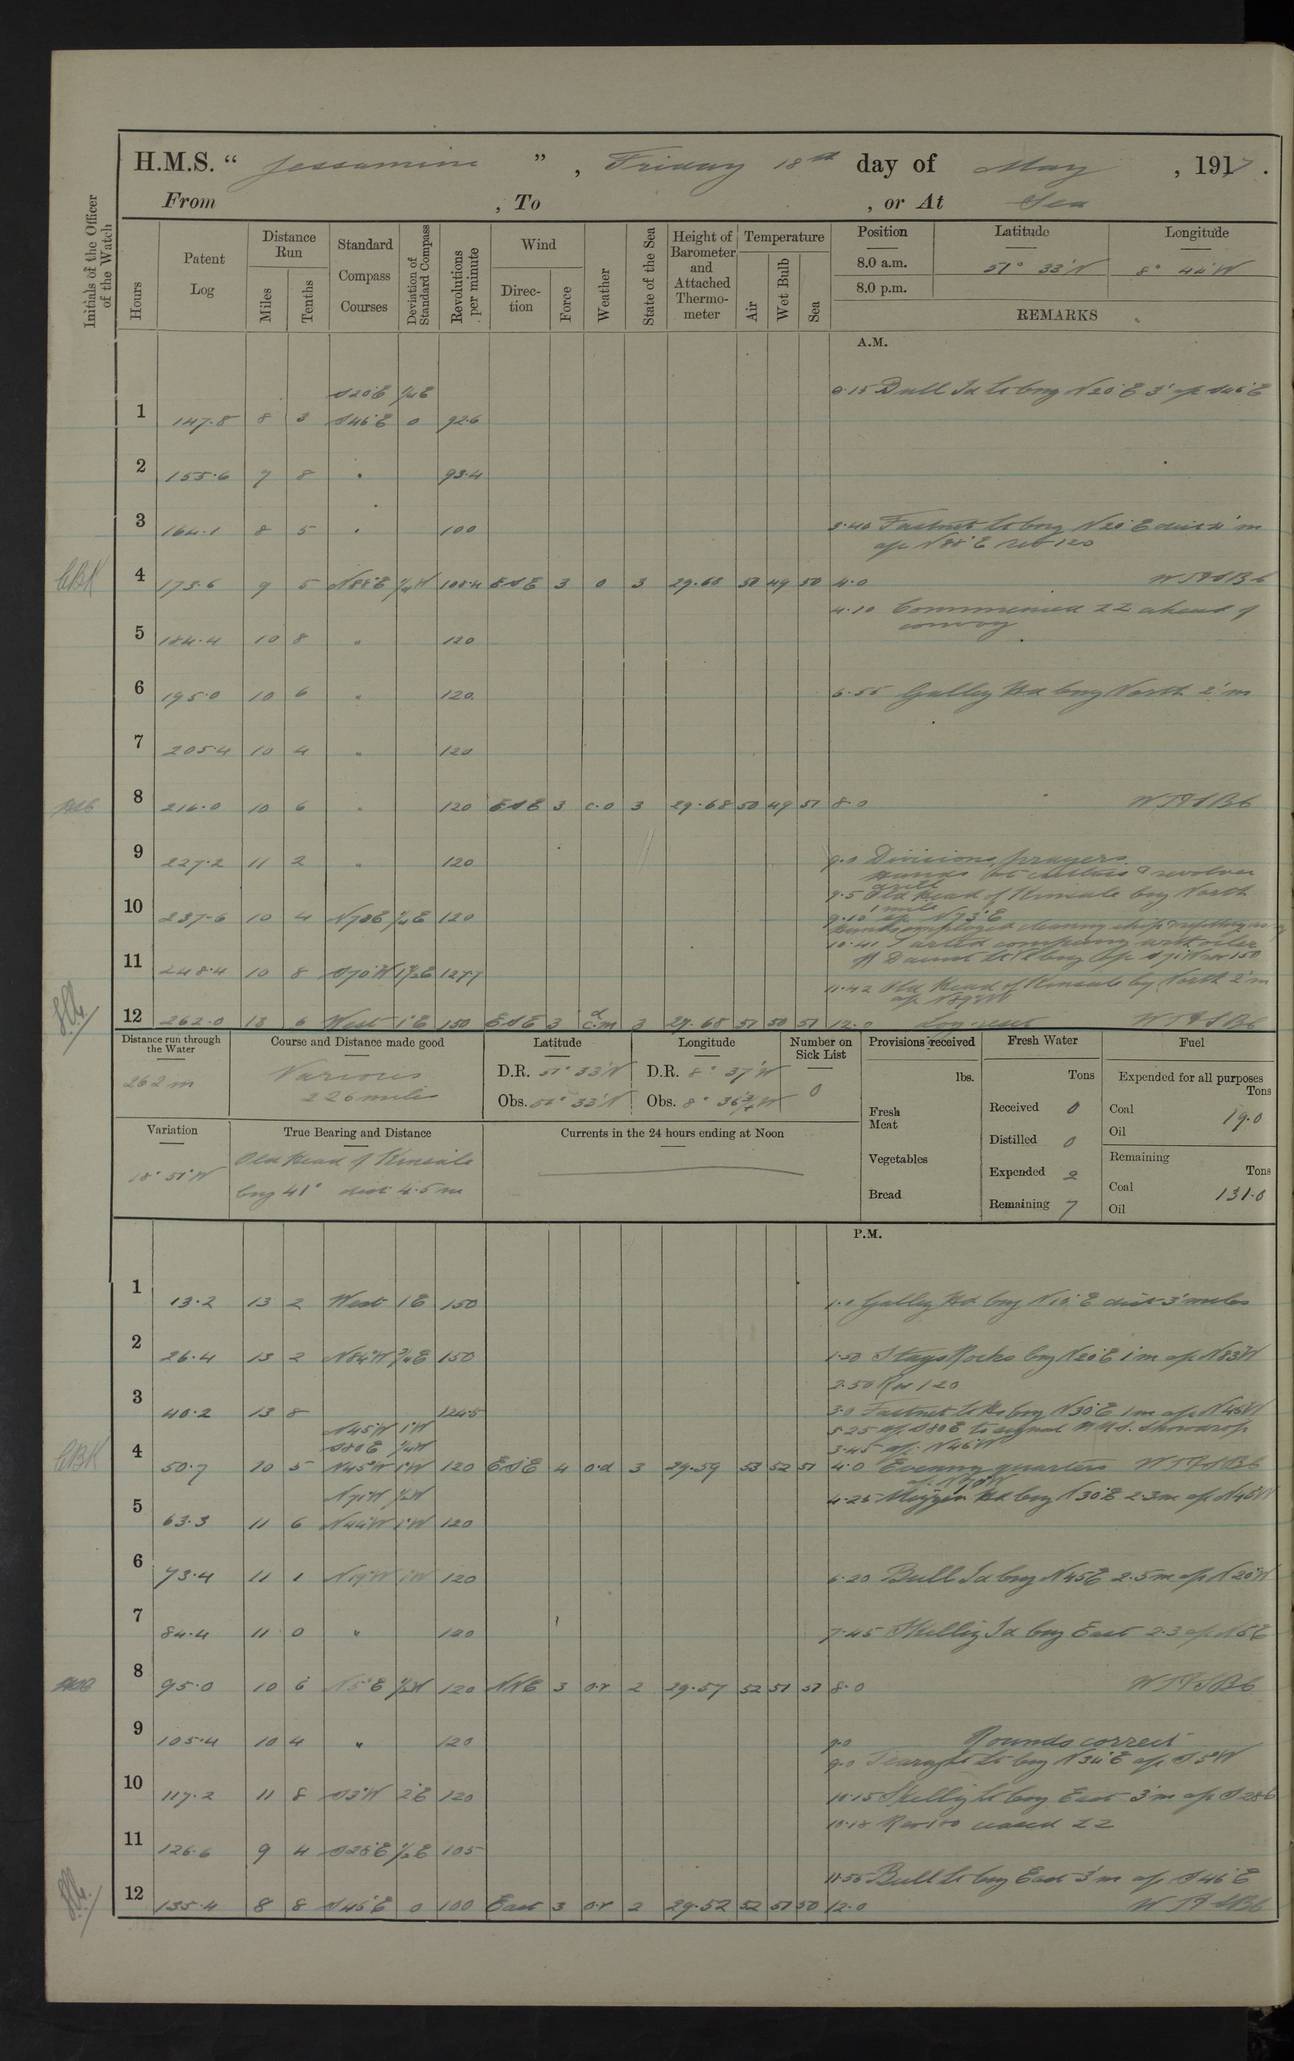 H.M.S. " Jessamine ", Friday 18th day of May, 1917.
From , To , or At Sea
Initials of the Officer of the Watch
Hours
Patent Log
Distance Run
Miles
Tenths
Standard Compass Courses
Deviation of Standard Compass
Revolutions per minute
Wind
Direction
Force
Weather
State of the Sea
Height of Barometer and Attached Thermometer
Temperature
Air
Wet Bulb
Sea
Position Latitude Longitude
8.0 a.m. 51° 33'N 8° 44'W
8.0 p.m.
REMARKS
A.M.
S20°E 1/4E 0.15 Bull Id Lt brng N20°E 3' a/c S46°E
1 147.8 8 3 S46°E 0 92.6
2 155.6 7 8 " 93.4
3 164.1 8 5 " 100 3.40 Fastnet Lt brng N20°E dist 2'm
a/c N88°E rev 120
CBK 4 173.6 9 5 N88°E 1/4W 108.4 ESE 3 0 3 29.68 50 49 50 4.0 WTFSB6
4.10 Commenced ZZ ahead of
convoy
5 184.4 10 8 " 120
6 195.0 10 6 " 120 6.55 Galley Hd brng North 2'm
7 205.4 10 4 " 120
8 216.0 10 6 " 120 ESE 3 c.o 3 29.68 50 49 51 8.0 WTFSB6
9 227.2 11 2 " 120 9.0 Divisions, prayers.
Hands at cutlass & revolver
drill
9.5 Old Head of Kinsale brng North
1 mile
10 237.6 10 4 N73E 1/4E 120 9.10 a/c N73°E
Hands employed cleaning ship
10.41 Parted company with oiler
11 248.4 10 8 S71°W 127.7 off Daunt Lt V brng a/c S71°W rev 150
11.42 Old Head of Kinsale brg North 2'm
a/c N89°W
12 262.0 13 6 West 1°E 150 ESE 3 c.m 3 29.68 51 50 51 12.0 Log reset WTFSB6
Distance run through the Water
262 m
Course and Distance made good
Various
226 miles
Latitude
D.R. 51° 33'N
Obs. 51° 33'N
Longitude
D.R. 8° 37'W
Obs. 8° 36 3/4'W
Number on Sick List
0
Variation
18° 51'W
True Bearing and Distance
Old Head of Kinsale
brng 41° dist 4.5 m
Currents in the 24 hours ending at Noon
Provisions received
lbs.
Fresh Meat
Vegetables
Bread
Fresh Water
Tons
Received 0
Distilled 0
Expended 2
Remaining 7
Fuel
Expended for all purposes
Tons
Coal 19.0
Oil
Remaining
Tons
Coal 131.0
Oil
P.M.
1 13.2 13 2 West 1E 150 1.0 Galley Hd brng N10°E dist 3 miles
2 26.4 13 2 N84°W 3/4E 150 1.50 Stags Rocks brng N20°E 1'm a/c N83°W
2.50 Rev 120
3 40.2 13 8 124.5 3.0 Fastnet Lt Ho brng N30°E 1m a/c N45°W
N45°W 1°W 3.25 a/c S80E to signal H.M.S. Snowdrop
S80E 1/4W 3.45 a/c N46°W
CBK 4 50.7 10 5 N45°W 1°W 120 ESE 4 o.d 3 29.59 53 52 51 4.0 Evening quarters WTFSB6
a/c N70°W
N71°W 1/2W 4.25 Mizzen Hd brng N30°E 2.3m a/c N45W
5 63.3 11 6 N44°W 1°W 120
6 73.4 11 1 N19°W 1°W 120 6.20 Bull Id brng N45E 2.5m a/c N20°W
7 84.4 11 0 " 120 7.45 Skellig Id brng East 2.3 a/c N5E
8 95.0 10 6 N5°E 1/2W 120 NNE 3 o.r 2 29.57 52 51 51 8.0 WTFSB6
9 105.4 10 4 " 120 9.0 Rounds correct
9.0 Tearaght Lt brng N34°E a/c S5°W
10 117.2 11 8 S3°W 2°E 120 10.15 Skellig Lt brng East 3'm a/c S28E
10.18 Rev 100 ceased ZZ
11 126.6 9 4 S28°E 1/2E 105
11.55 Bull Lt brng East 3'm a/c S46°E
12 135.4 8 8 S46°E 0 100 East 3 o.r 2 29.52 52 51 50 12.0 WTFSB6